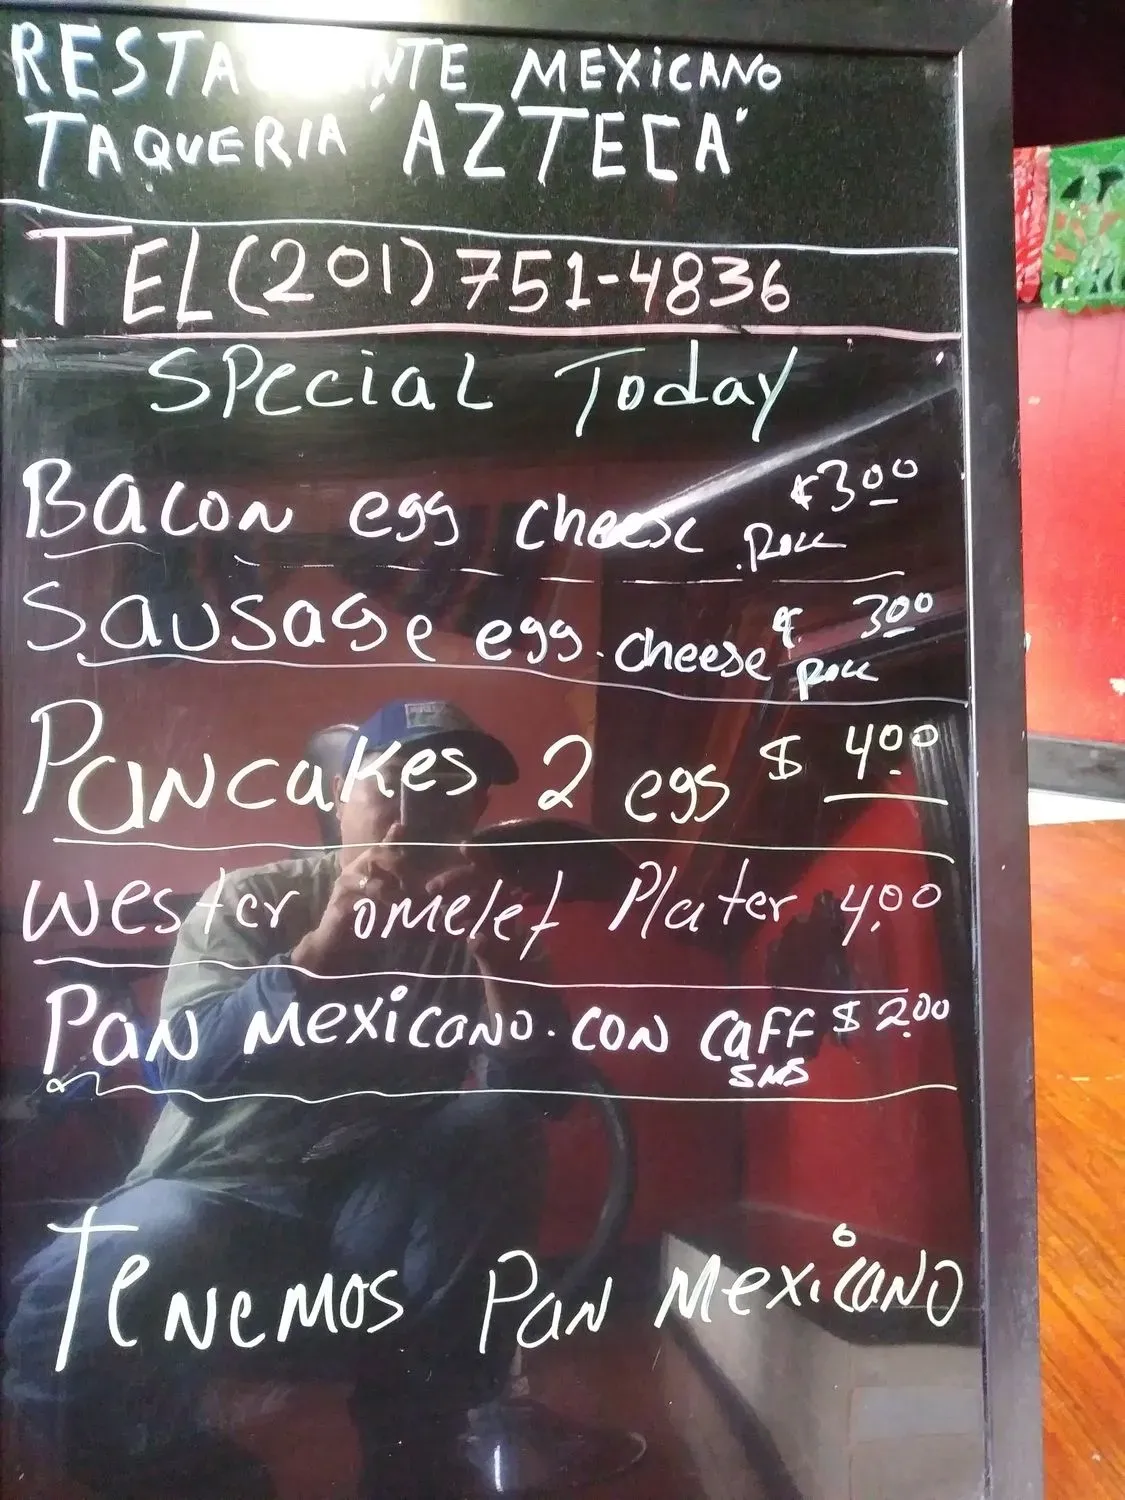 RESTAURANTE MEXICANO
TAQUERIA "AZTECA"
TEL (201) 751-4836
SPecial Today
Bacon egg cheese Roll $3.00
Sausage egg. cheese Roll $ 3.00
Pancakes 2 eggs $ 4.00
Wester omelet Plater 4.00
Pan Mexicano. con caff $ 2.00
Tenemos Pan Mexicano